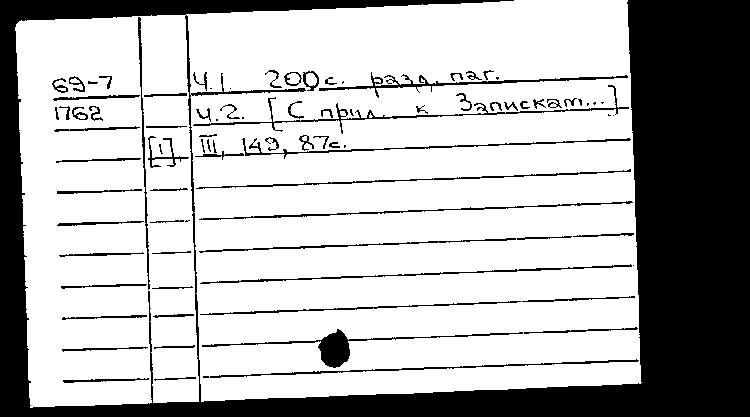 69-7 Ч.1. 200с. разд. паг.
1762 Ч.2. [С прил. к Запискам...]
[1] III, 149, 87с.